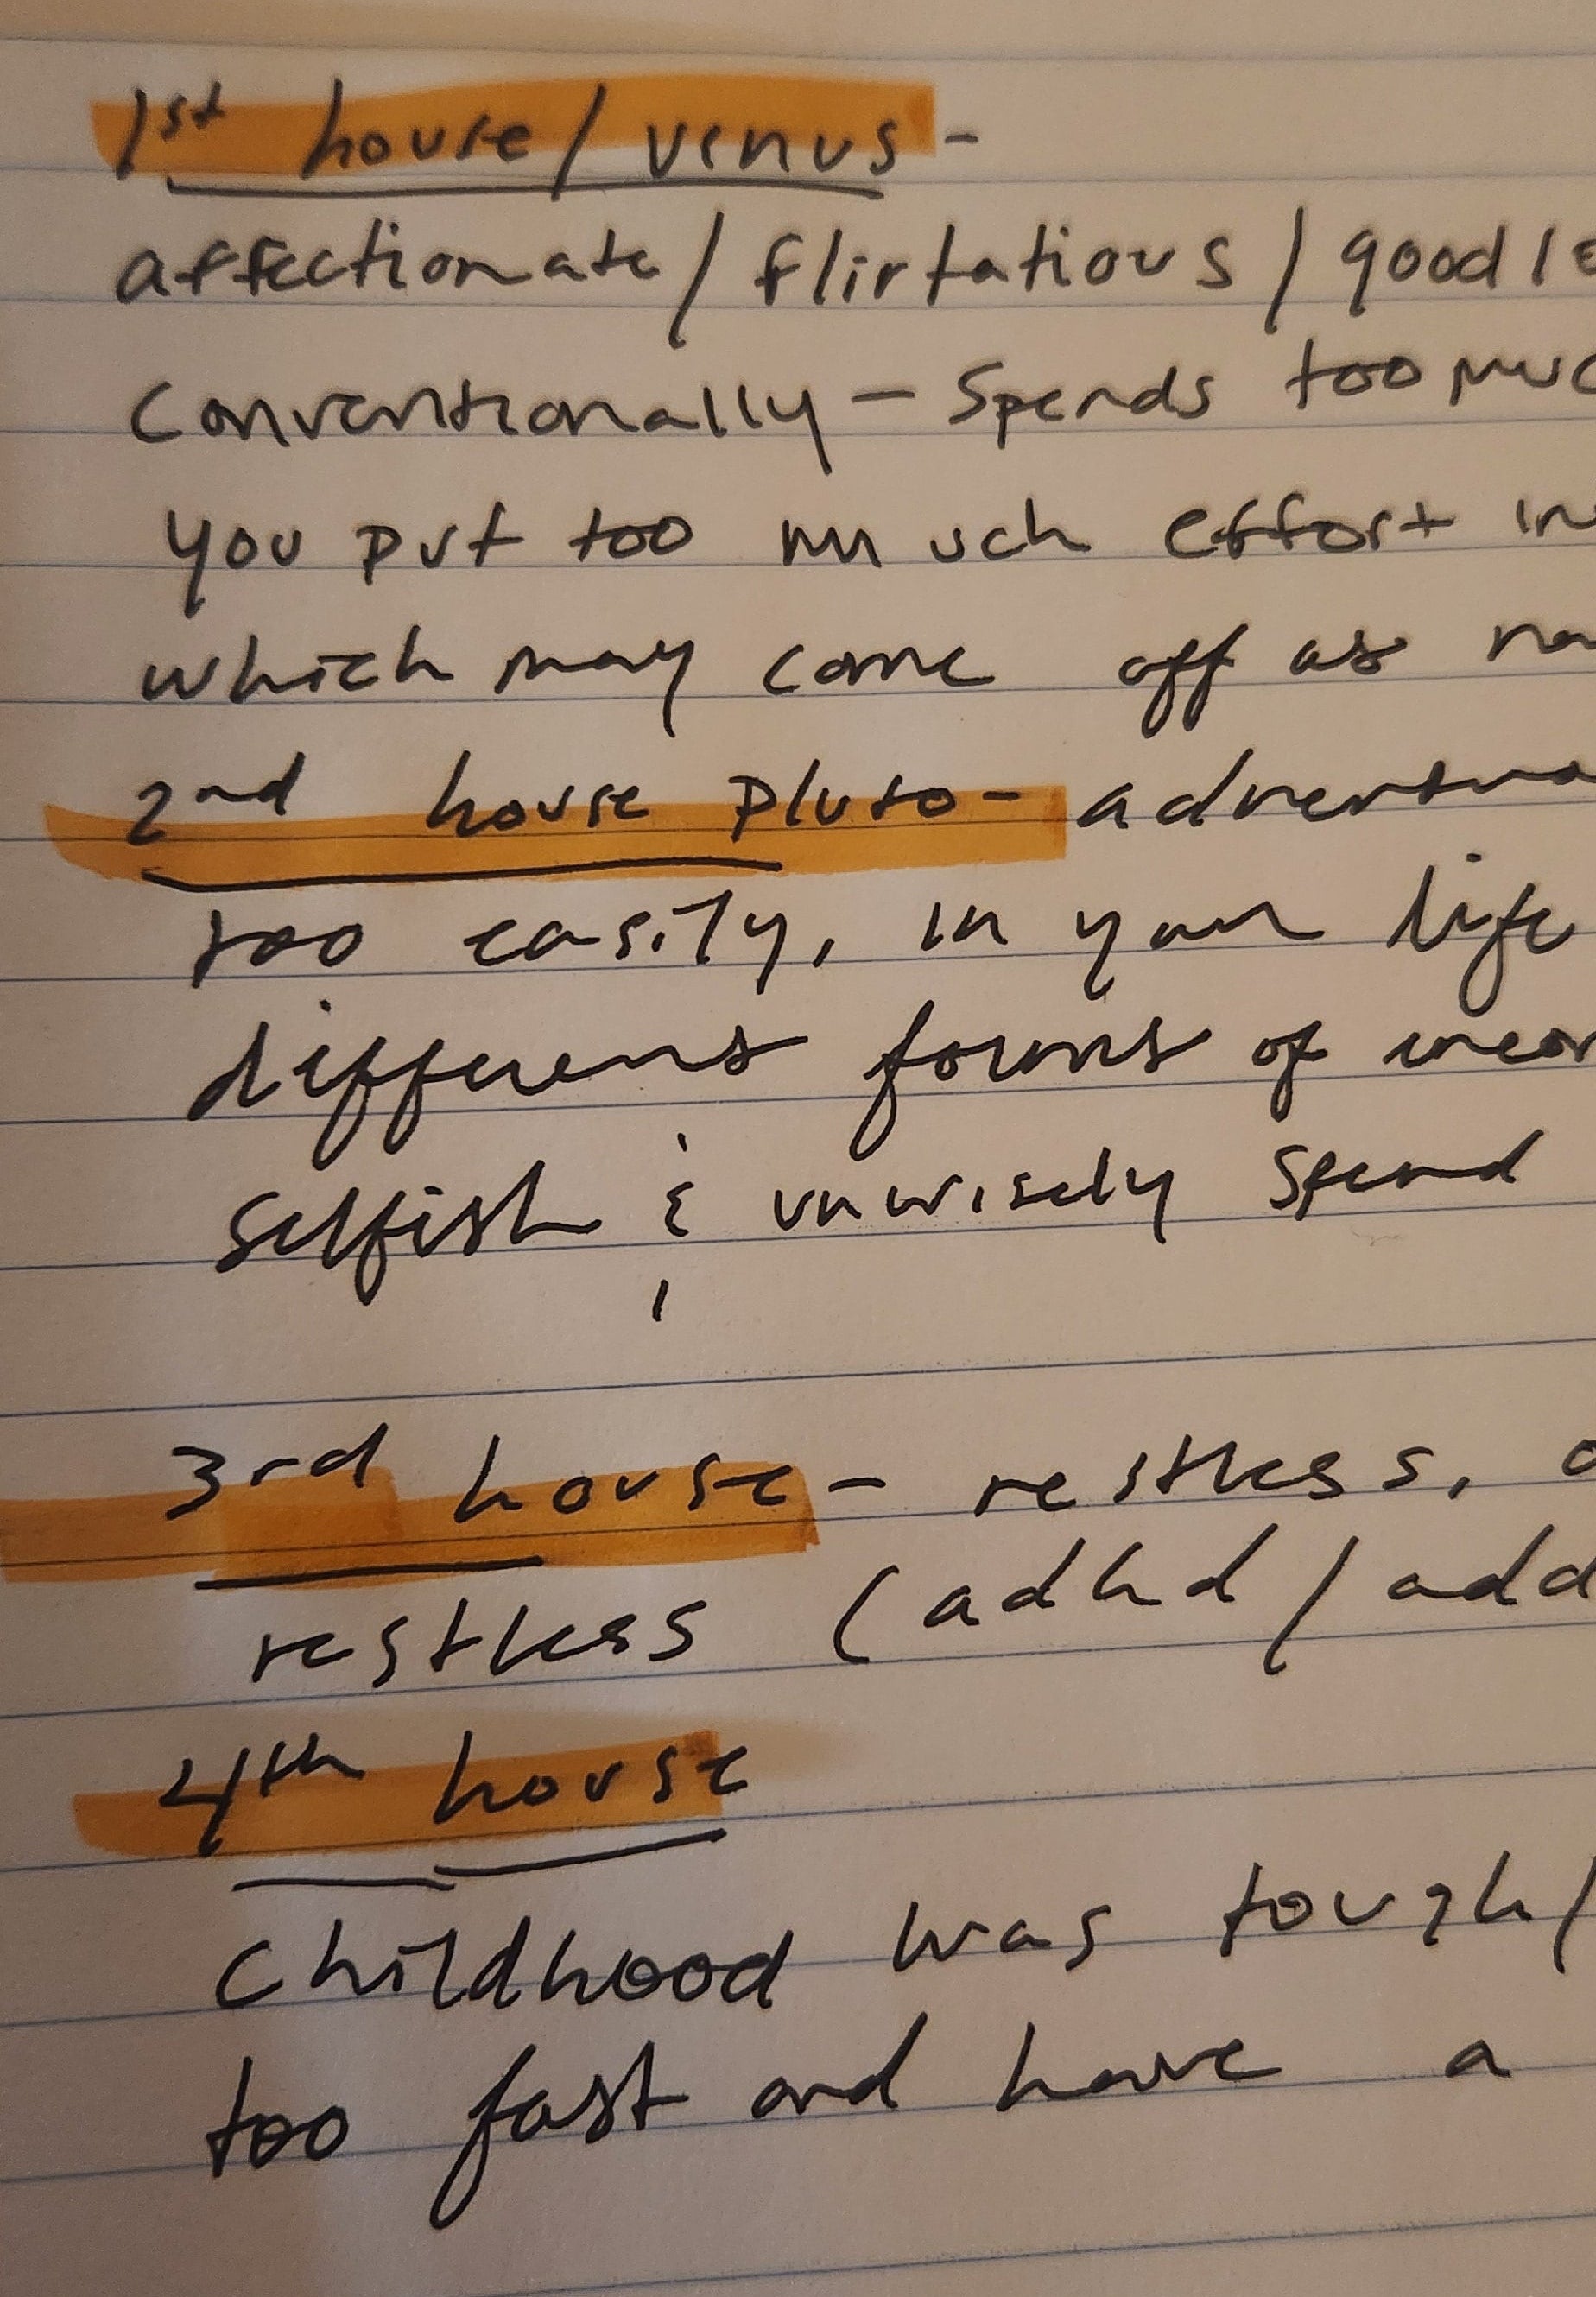 1st house / venus -
affectionate / flirtatious / good
conventionally - Spends too
you put too much effort
which may come off as
2nd house pluto -
too easily, in your life
different forms of
selfish & unwisely spend
3rd house - restless,
restless (adhd / add
4th house
childhood was tough /
too fast and have a